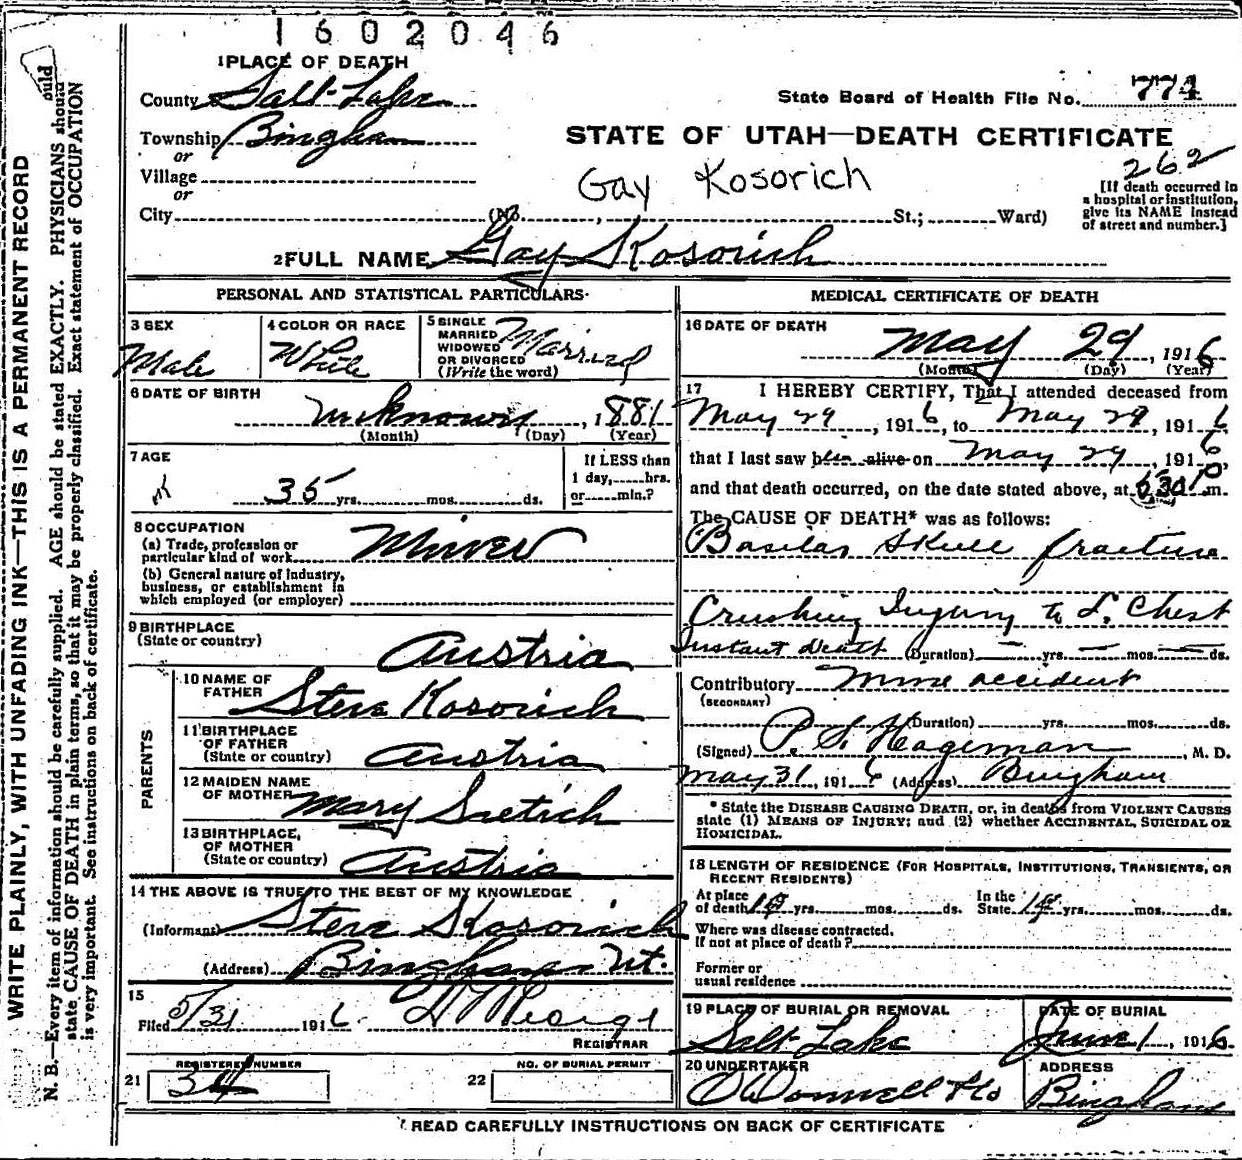 1602046
1 PLACE OF DEATH
County Salt Lake
State Board of Health File No. 774
Township Bingham
STATE OF UTAH—DEATH CERTIFICATE
or
262
Village
Gay Kosorich
or
[If death occurred in
a hospital or institution,
give its NAME instead
of street and number.]
City (No. , St.; Ward)
2 FULL NAME Gay Kosorich
PERSONAL AND STATISTICAL PARTICULARS
3 SEX
Male
4 COLOR OR RACE
White
5 SINGLE
MARRIED
WIDOWED
OR DIVORCED
(Write the word)
Married
6 DATE OF BIRTH
unknown , 1881
(Month) (Day) (Year)
7 AGE
35 yrs. mos. ds.
If LESS than
1 day, hrs.
or min.?
8 OCCUPATION
(a) Trade, profession or
particular kind of work Miner
(b) General nature of industry,
business, or establishment in
which employed (or employer)
9 BIRTHPLACE
(State or country)
Austria
PARENTS
10 NAME OF
FATHER
Steve Kosorich
11 BIRTHPLACE
OF FATHER
(State or country) Austria
12 MAIDEN NAME
OF MOTHER Mary
13 BIRTHPLACE,
OF MOTHER
(State or country) Austria
14 THE ABOVE IS TRUE TO THE BEST OF MY KNOWLEDGE
(Informant) Steve Kosorich
(Address) Bingham Ut.
15
Filed 5/31 191 6.
REGISTRAR
REGISTERED NUMBER
21
NO. OF BURIAL PERMIT
22
MEDICAL CERTIFICATE OF DEATH
16 DATE OF DEATH
May 29 , 1916
(Month) (Day) (Year)
17 I HEREBY CERTIFY, That I attended deceased from
May 29 , 191 6, to May 29 , 191 6
that I last saw alive on May 29 , 191 6,
and that death occurred, on the date stated above, at 530 P m.
The CAUSE OF DEATH* was as follows:
Basilar Skull fracture
Crushing Injury to L. Chest
Instant death (Duration) yrs. mos. ds.
Contributory Mine accident
(SECONDARY)
(Duration) yrs. mos. ds.
(Signed) P. S. Hageman , M. D.
May 31, 191 6 (Address) Bingham
* State the DISEASE CAUSING DEATH, or, in deaths from VIOLENT CAUSES
state (1) MEANS OF INJURY; and (2) whether ACCIDENTAL, SUICIDAL OR
HOMICIDAL.
18 LENGTH OF RESIDENCE (FOR HOSPITALS, INSTITUTIONS, TRANSIENTS, OR
RECENT RESIDENTS)
At place
of death yrs. mos. ds.
In the
State yrs. mos. ds.
Where was disease contracted,
If not at place of death?
Former or
usual residence
19 PLACE OF BURIAL OR REMOVAL
Salt Lake
DATE OF BURIAL
June 1 , 1916.
20 UNDERTAKER
O'Donnell & Co
ADDRESS
Bingham
READ CAREFULLY INSTRUCTIONS ON BACK OF CERTIFICATE
WRITE PLAINLY, WITH UNFADING INK—THIS IS A PERMANENT RECORD
N. B.—Every item of information should be carefully supplied. AGE should be stated EXACTLY. PHYSICIANS should
state CAUSE OF DEATH in plain terms, so that it may be properly classified. Exact statement of OCCUPATION
is very important. See instructions on back of certificate.